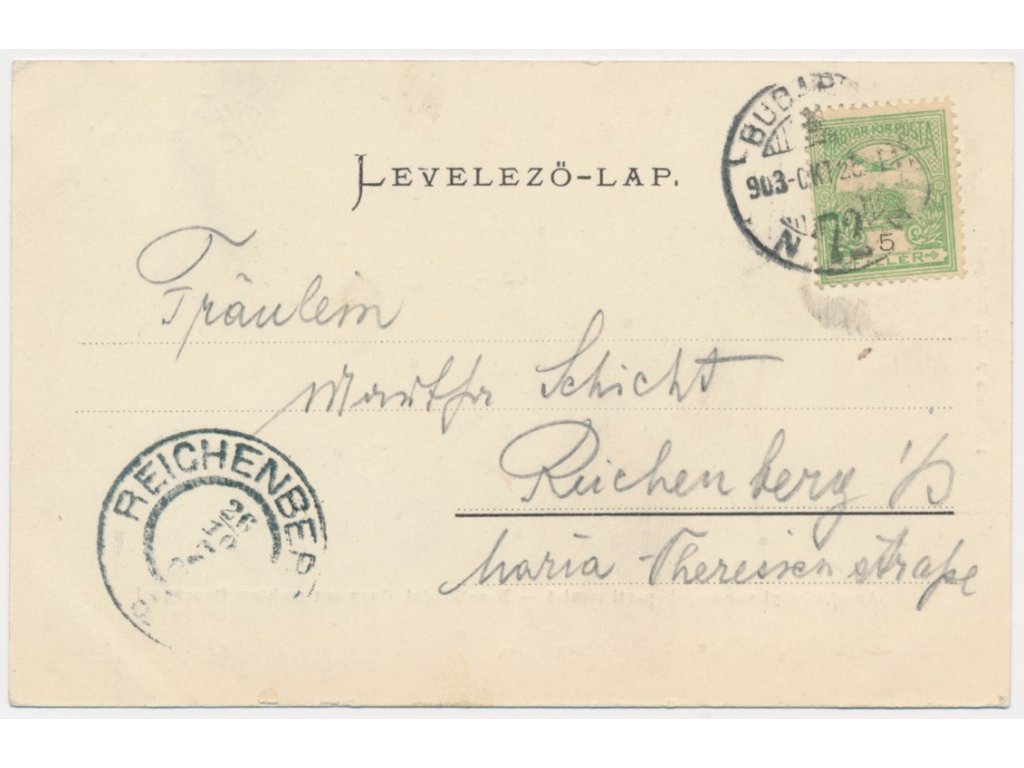 LEVELEZŐ-LAP.
BUDAP
903-OKT 25
N 72
MAGYAR KIR. POSTA
5
FILLER
Fräulein
Martha Schicht
Reichenberg i/B
Maria Theresien straße
REICHENBER
26